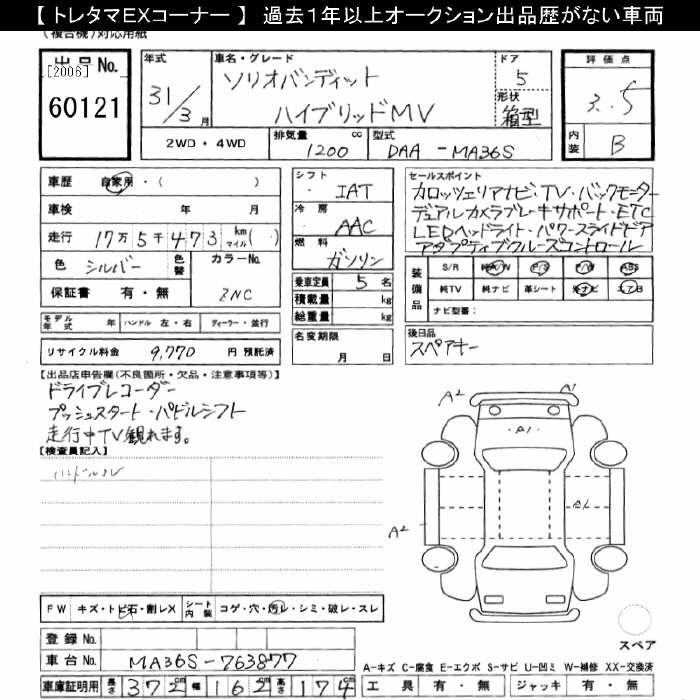 【 トレタマＥＸコーナー 】 過去１年以上オークション出品歴がない車両
(複合機)対応用紙
出品 No. [2006] 60121
年式 31/3月
車名・グレード ソリオバンディット ハイブリッドMV
ドア 5
形状 箱型
評価点 3.5
内装 B
2WD・4WD
排気量 1200 cc
型式 DAA-MA36S
車歴 自家用・( )
車検 年 月
走行 17万5千473 km マイル( )
色 シルバー 色替
カラーNo. ZNC
保証書 有・無
モデル年式 年 ハンドル 左・右 ディーラー・並行
リサイクル料金 9,770 円 預託済
シフト IAT
冷房 AAC
燃料 ガソリン
乗車定員 5 名
積載量 kg
総重量 kg
名変期限 月 日
セールスポイント
カロッツェリアナビ・TV・バックモニター
デュアルカメラブレーキサポート・ETC
LEDヘッドライト・パワースライドドア
アダプティブクルーズコントロール
装備品 S/R A/W P/S P/W ABS
純TV 純ナビ 革シート 社ナビ エアB
ナビ型番：
後日品
スペアキー
【出品店申告欄(不良箇所・欠品・注意事項等)】
ドライブレコーダー
プッシュスタート・パドルシフト
走行中TV観れます。
【検査員記入】
ハンドルスレ
FW キズ・トビ石・割レX シート内装 コゲ・穴・汚レ・シミ・破レ・スレ
登録 No.
車台 No. MA36S-763877
車庫証明用 長さ 372 cm 幅 162 cm 高さ 174 cm
A2 A1
A1
A1
A2
スペア
A-キズ C-腐食 E-エクボ S-サビ U-凹ミ W-補修 XX-交換済
工具 有・無 ジャッキ 有・無